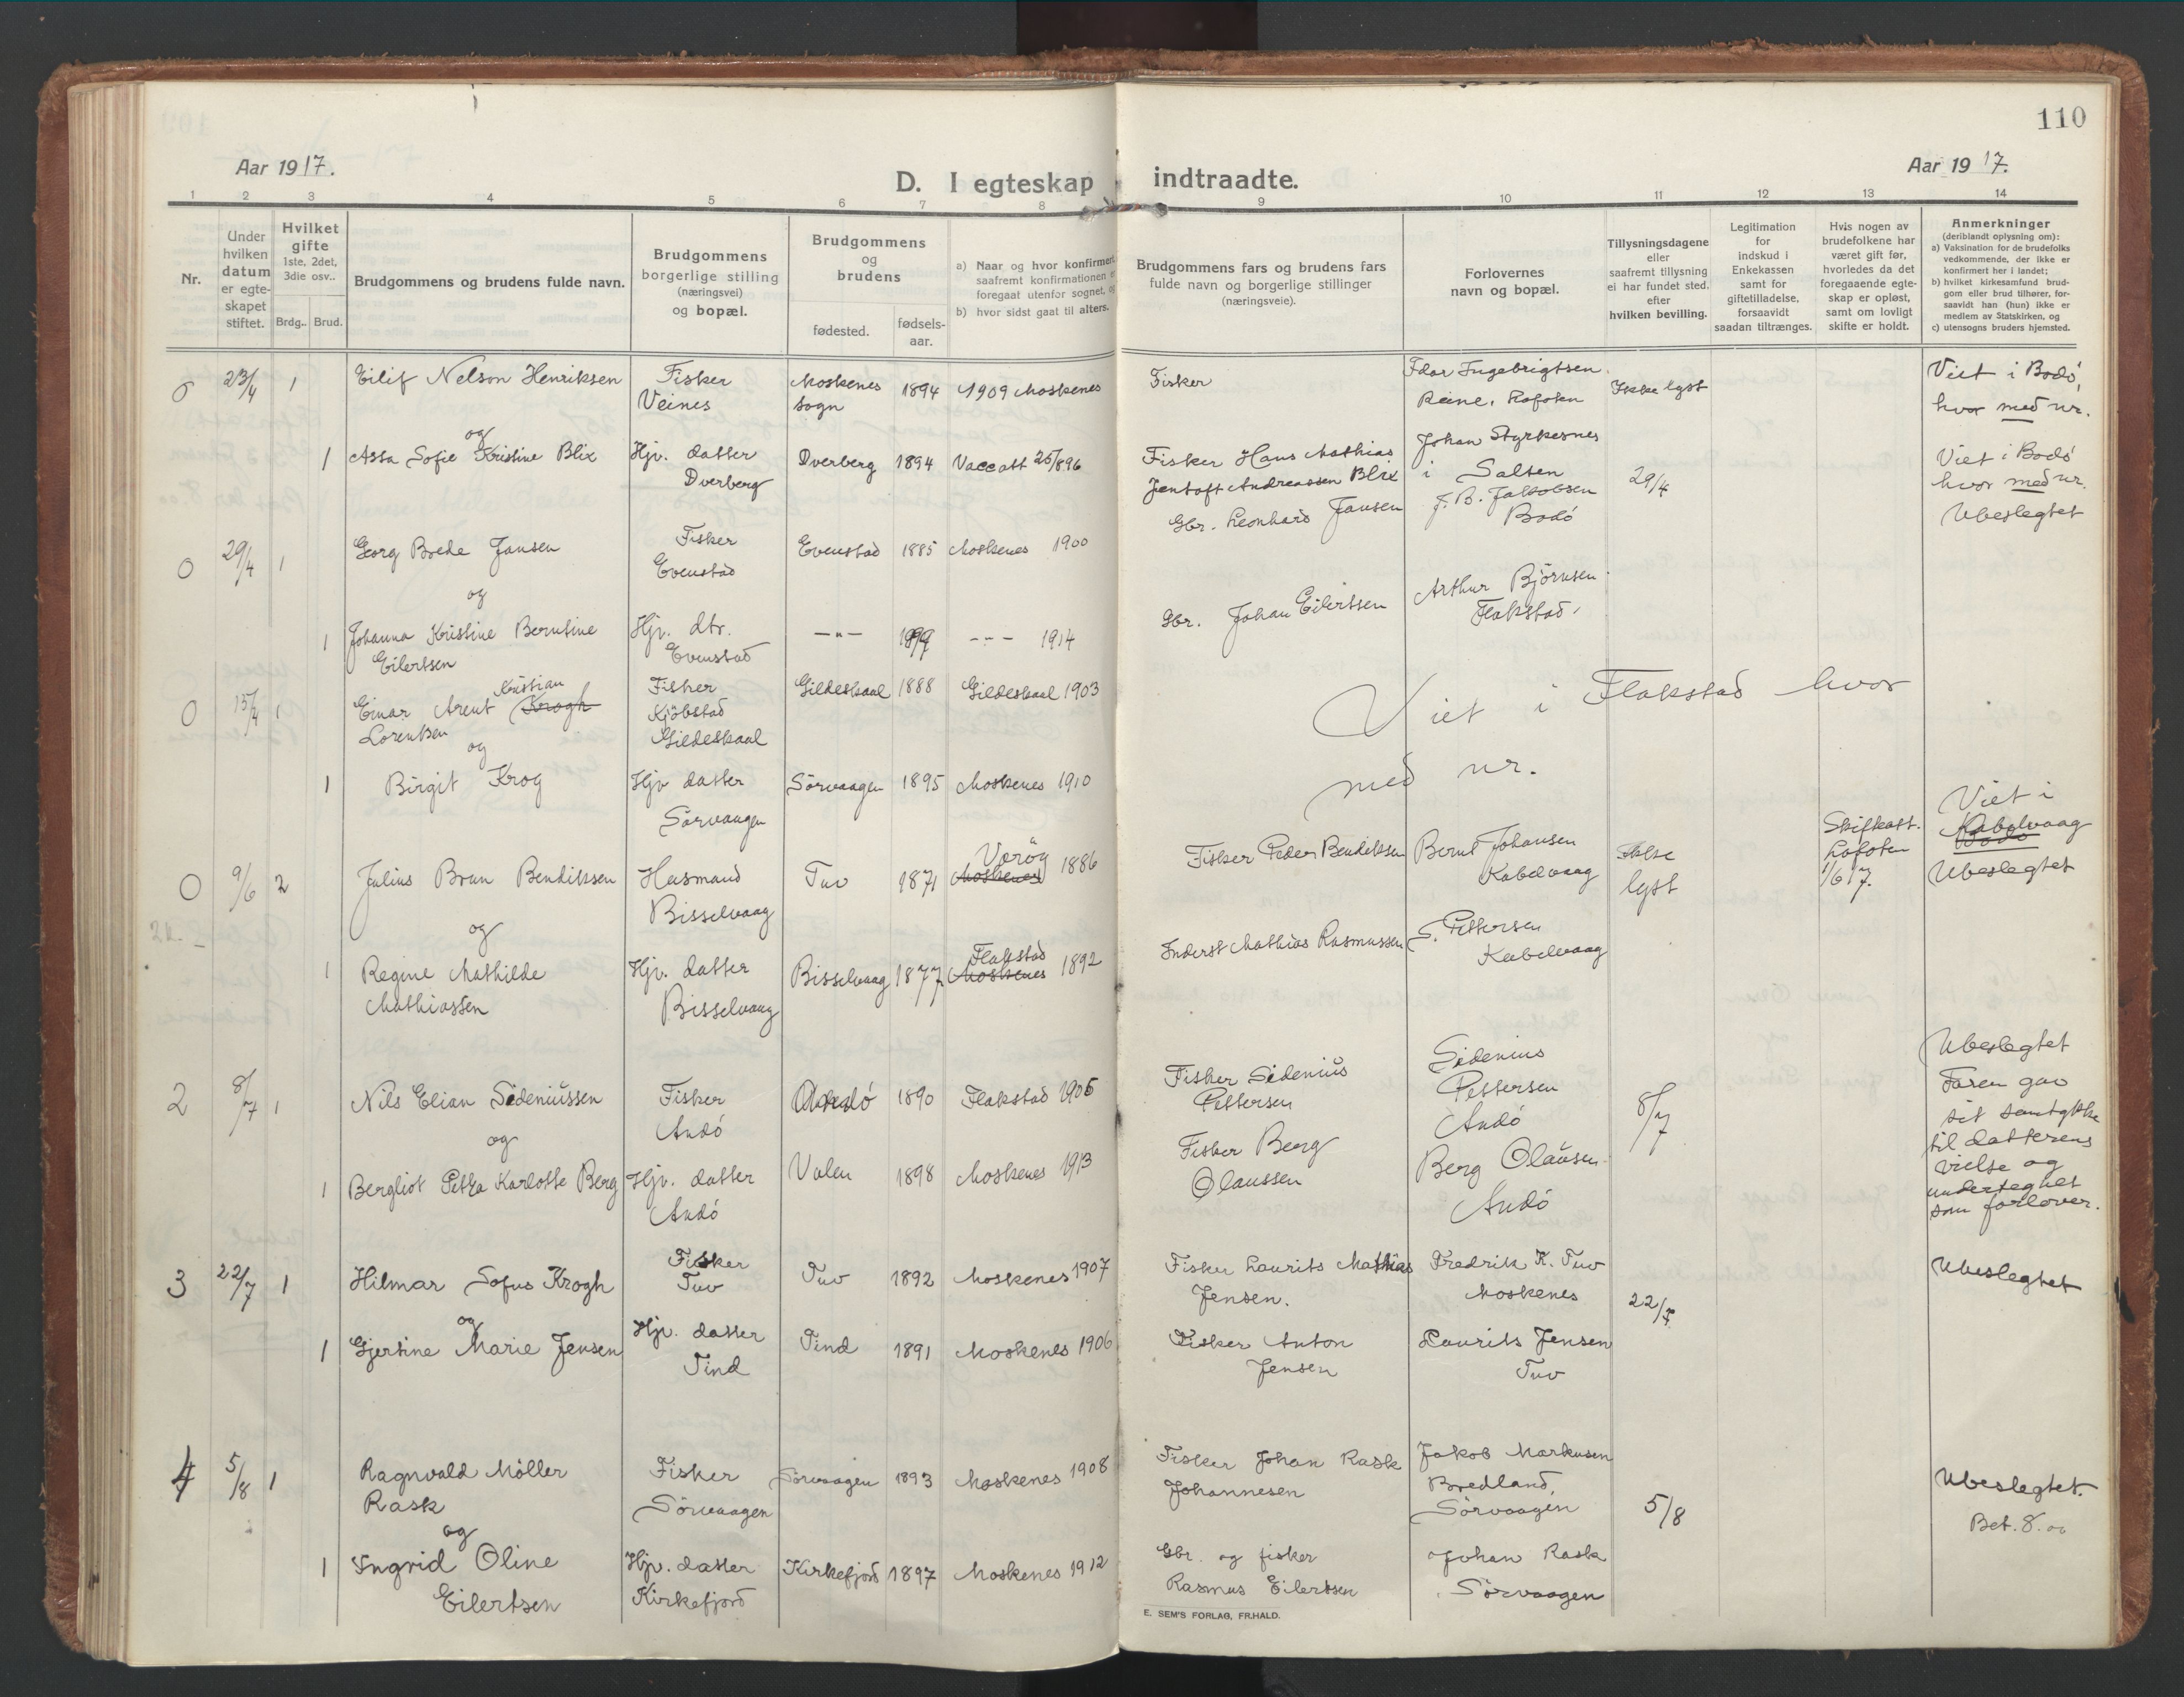 110
Aar 1917.
D. I egteskap indtraadte.
Aar 1917.
1 2 3 4 5 6 7 8 9 10 11 12 13 14
Nr.
Under hvilken datum er egteskapet stiftet.
Hvilket gifte 1ste, 2det, 3die osv..
Brdg.. Brud.
Brudgommens og brudens fulde navn.
Brudgommens borgerlige stilling (næringsvei) og bopæl.
Brudgommens og brudens
fødested.
fødsels-aar.
a) Naar og hvor konfirmert, saafremt konfirmationen foregaat utenfor sognet, og
b) hvor sidst gaat til alters.
Brudgommens fars og brudens fars fulde navn og borgerlige stillinger (næringsveie).
Forlovernes navn og bopæl.
Tillysningsdagene eller saafremt tillysning ei har fundet sted. efter hvilken bevilling.
Legitimation for indskud i Enkekassen samt for giftetilladelse, forsaavidt saadan tiltrænges.
Hvis nogen av brudefolkene har været gift før, hvorledes da det foregaaende egteskap er opløst, samt om lovligt skifte er holdt.
Anmerkninger
(deriblandt oplysning om):
a) Vaksination for de brudefolks vedkommende, der ikke er konfirmert her i landet;
b) hvilket kirkesamfund brudgom eller brud tilhører, forsaavidt han (hun) ikke er medlem av Statskirken, og
c) utensogns bruders hjemsted.
0 23/4 1 Eilif Nelson Henriksen Fisker Veines Moskenes sogn 1894 1909 Moskenes Fisker Ingebrigtsen Reine. Lofoten Ikke lyst Viet i Bodö, hvor med nr.
og
1 Assa Sofie Kristine Blix Hjv. datter Dverberg Dverberg 1894 Vacc att 25/896 Fisker Hans Mathias Jentoft Andreassen Blix Johan Styrkesnes i Salten J. B. Jakobsen Bodö 29/4 Viet i Bodö hvor med nr. Ubeslegtet
0 29/4 1 Georg Brede Jansen Fisker Evenstad Evenstad 1885 Moskenes 1900 Gbr. Leonhard Jansen Arthur Björnsen Flakstad.
og
1 Johanna Kristine Berntine Eilertsen Hjv. dtr. Evenstad —"— 1899 --- 1914 Gbr. Johan Eilertsen
0 15/4 1 Einar Arent Kristian Krogh Lorentsen Fisker Kjöbstad Gildeskaal Gildeskaal 1888 Gildeskaal 1903 Viet i Flakstad hvor
og
1 Birgit Krog Hjv datter Sörvaagen Sörvaagen 1895 Moskenes 1910 med nr.
0 9/6 2 Julius Brun Bendiksen Husmand Bisselvaag Tuv 1871 Moskenes Værøy 1886 Fisker Peder Bendiksen Bernt Johansen Kabelvaag Ikke lyst Skifteatt. Lofoten 1/6 17. Viet i Kabelvaag Bodö Ubeslegtet
og
1 Regine Mathilde Mathiassen Hjv. datter Bisselvaag Bisselvaag 1877 Flakstad Moskenes 1892 Inderst Mathias Rasmussen S. Pettersen Kabelvaag
2 8/7 1 Nils Elian Sideniussen Fisker Andö Andö 1890 Flakstad 1905 Fisker Sidenius Pettersen Sidenius Pettersen Andö 8/7 Ubeslegtet Faren gav sit samtykke til datterens vielse og undertegnet som forlover.
og
1 Bergliot Petra Karlotte Berg Hjv. datter Andö Valen 1898 Moskenes 1913 Fisker Berg Olaussen Berg Olausen Andö
3 22/7 1 Hilmar Sofus Krogh Fisker Tuv Tuv 1892 Moskenes 1907 Fisker Laurits Mathias Jensen. Fredrik K. Tuv Moskenes 22/7 Ubeslegtet
og
1 Gjertine Marie Jensen Hjv. datter Tind Tind 1891 Moskenes 1906 Fisker Anton Jensen Laurits Jensen Tuv
4 5/8 1 Ragnvald Möller Rask Fisker Sörvaagen Sörvaagen 1893 Moskenes 1908 Fisker Johan Rask Johannesen Jakob Markusen Bredland, Sörvaagen 5/8 Ubeslegtet. Bet. 8.00
og
1 Ingrid Oline Eilertsen Hjv. datter Kirkefjord Kirkefjord 1897 Moskenes 1912 Gbr. og fisker Rasmus Eilertsen Johan Rask Sörvaagen
E. SEM'S FORLAG, FR.HALD.